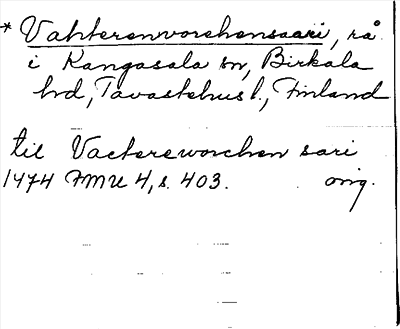 * Vahterenvorehensaari, rå
i Kangasala sn, Birkala
hd, Tavastehus l., Finland
til Vactereworchen sari
1474 FMU 4, s. 403. orig.